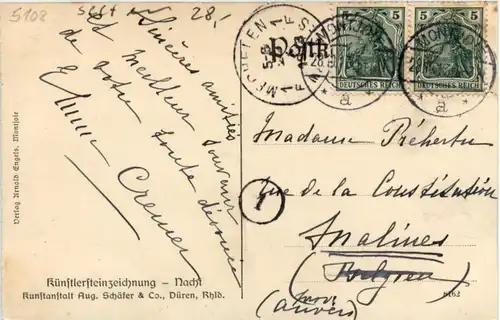 5108
5sft
28,-
Sincères amitiés
et meilleur souvenir
de votre toute dévouée
Emma Cremer
Verlag Arnold Engels, Montjoie
Künstlersteinzeichnung – Nacht
Kunstanstalt Aug. Schäfer & Co., Düren, Rhld.
MECHELEN
1F
MONTJOIE
a
MONTJOIE
a
5
5
DEUTSCHES REICH
DEUTSCHES REICH
Madame Préherbu
rue de la Constitution
1
Malines
(Belgien)
(prov.
Anvers)
6162